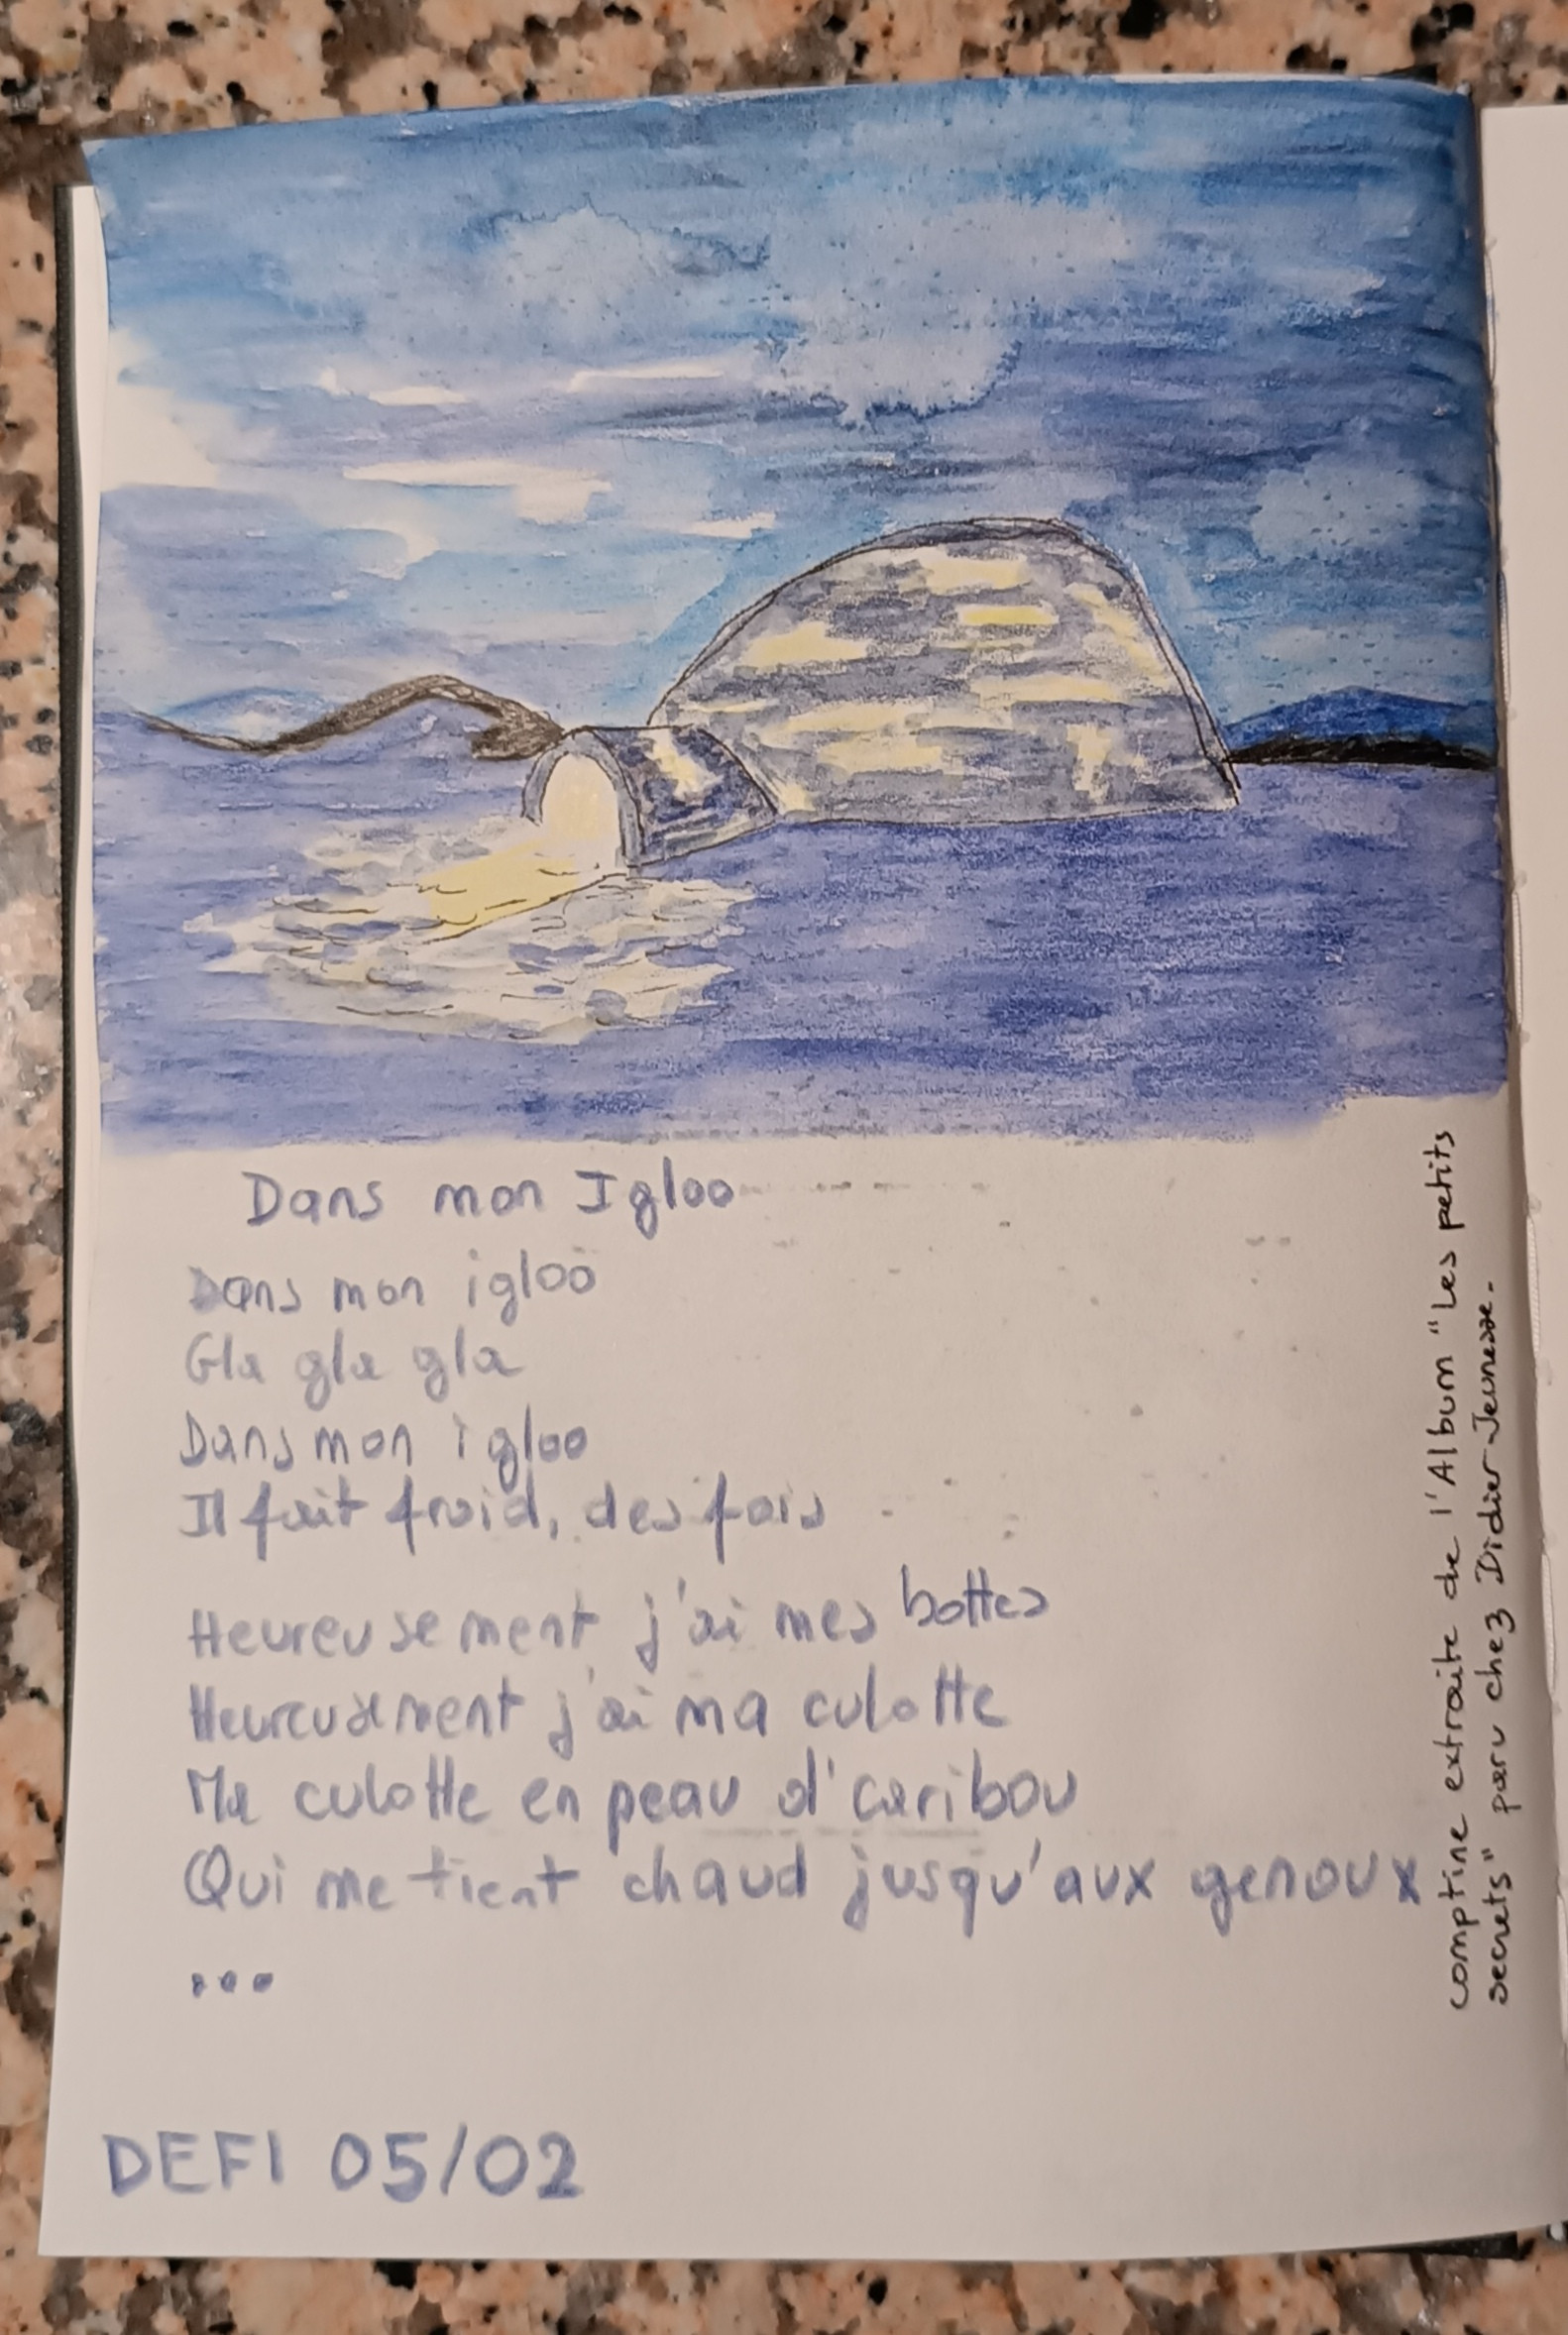 Dans mon Igloo
Dans mon igloo
Gla gla gla
Dans mon igloo
Il fait froid, des fois
Heureusement j'ai mes bottes
Heureusement j'ai ma culotte
Ma culotte en peau d'caribou
Qui me tient chaud jusqu'aux genoux
...
DEFI 05/02
comptine extraite de l'Album "Les petits
secrets" paru chez Didier Jeunesse.